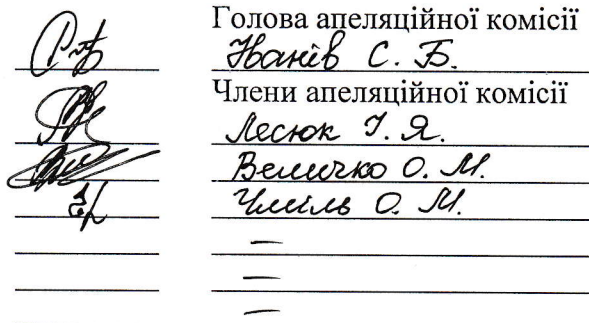 Голова апеляційної комісії
Іванів С. Б.
Члени апеляційної комісії
Лесюк І. Я.
Величко О. М.
Чміль О. М.
—
—
—